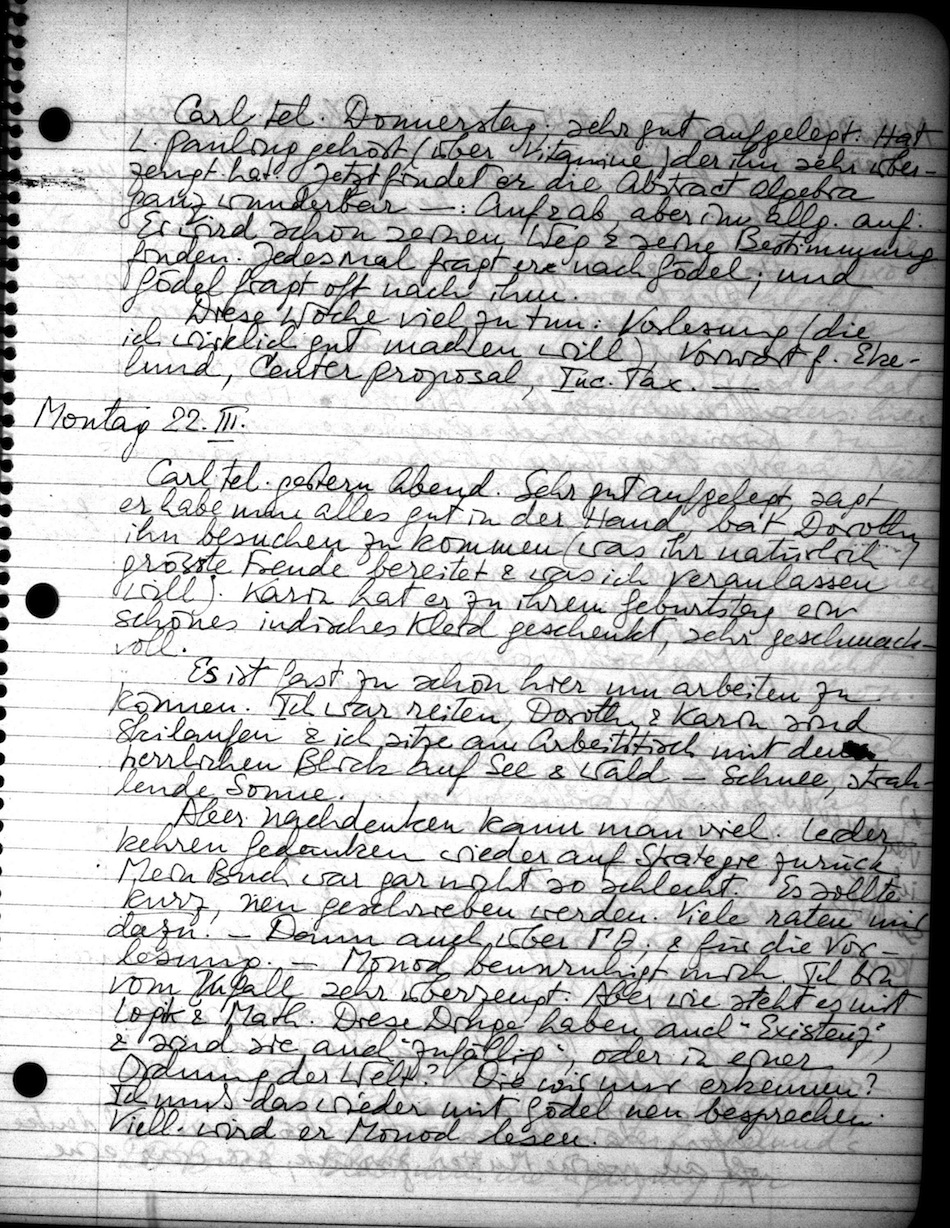 Carl tel. Donnerstag, sehr gut aufgelegt. Hat
L. Pauling gehört (über Vitamine) der ihn sehr über-
zeugt hat. Jetzt findet er die Abstract Algebra
ganz wunderbar —: Auf & ab, aber im allg. auf.
Er wird schon seinen Weg & seine Bestimmung
finden. Jedesmal fragt er nach Gödel; und
Gödel fragt oft nach ihm.
Diese Woche viel zu tun: Vorlesung (die
ich wirklich gut machen will), Vorwort f. Eke-
lund, Center proposal, Inc. Tax. —
Montag 22. III.
Carl tel. gestern Abend. Sehr gut aufgelegt, sagt
er habe nun alles gut in der Hand, bat Dorothy
ihn besuchen zu kommen (was ihr natürlich
größte Freude bereitet & was ich veranlassen
will). Karin hat er zu ihrem Geburtstag ein
schönes indisches Kleid geschenkt, sehr geschmack-
voll.
Es ist fast zu schön hier um arbeiten zu
können. Ich war reiten, Dorothy & Karin sind
Skilaufen & ich sitze am Arbeitstisch mit dem
herrlichen Blick auf See & Wald – Schnee, strah-
lende Sonne.
Aber nachdenken kann man viel. Leider
kehren Gedanken wieder auf Strategie zurück.
Mein Buch war gar nicht so schlecht. Es sollte
kurz, neu geschrieben werden. Viele raten mir
dazu. – Dann auch über & für die Vor-
lesung. – Monod beunruhigt mich. Ich bin
vom Zufall sehr überzeugt. Aber wie steht es mit
Logik & Math. Diese Dinge haben auch "Existenz",
& sind sie auch "zufällig", oder in einer
Ordnung der Welt? Die wir nur erkennen?
Ich muß das wieder mit Gödel neu besprechen.
Viell. wird er Monod lesen.